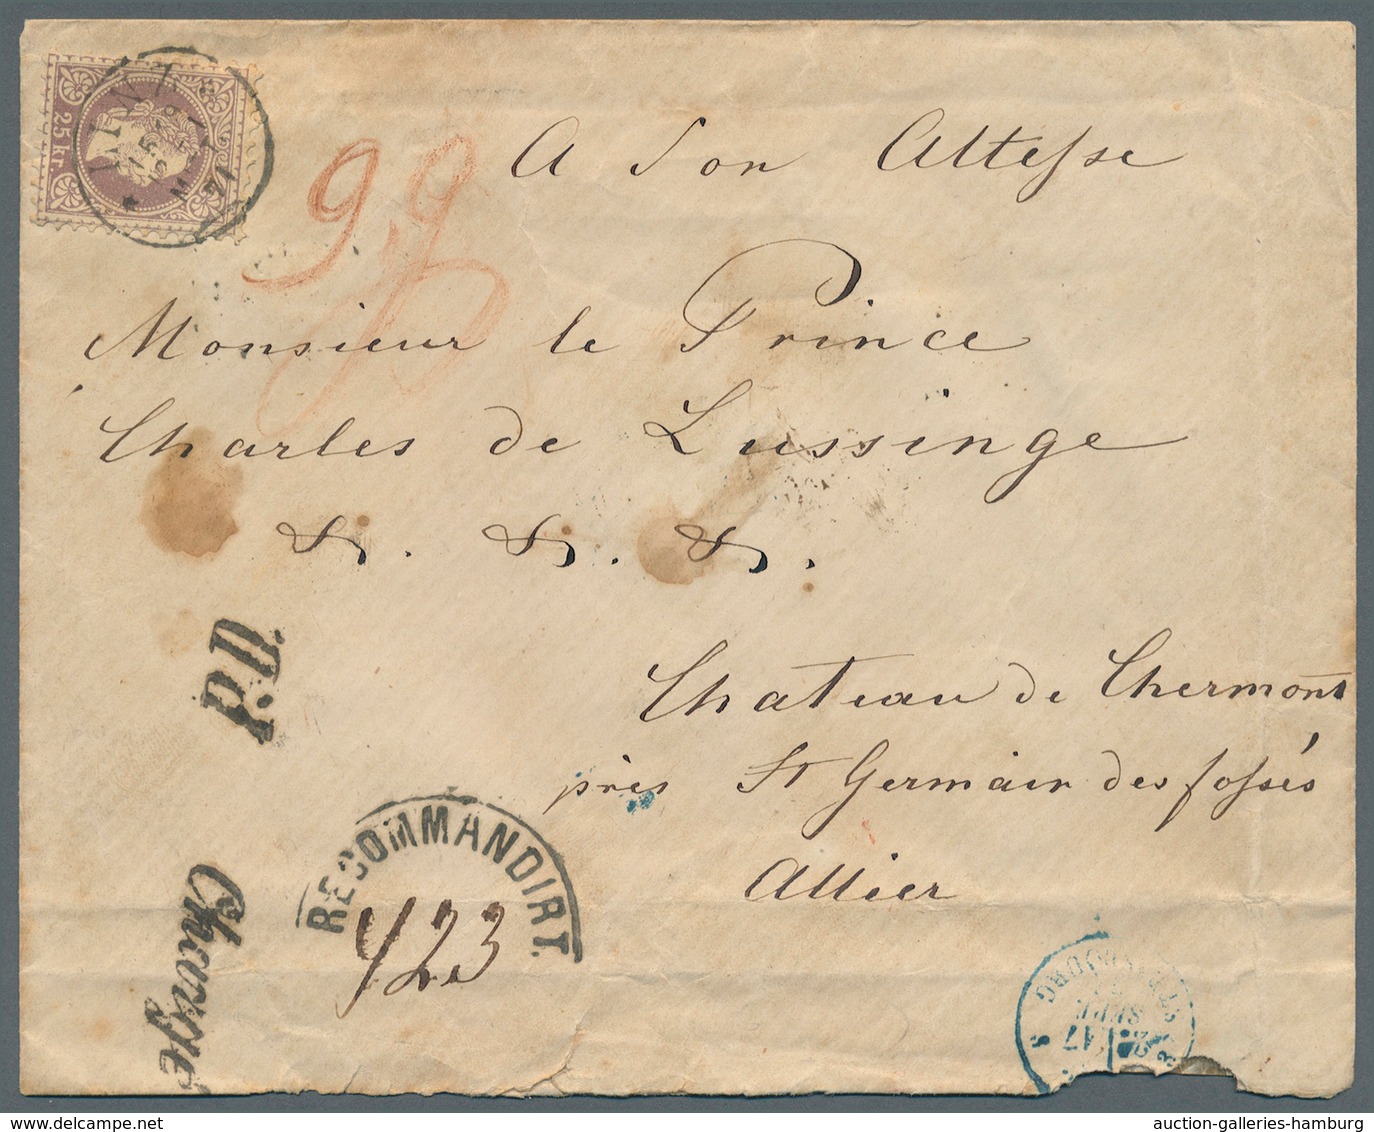 25 kr.
LINZ
15 9
71
99
A Son Altesse
Monsieur le Prince
Charles de Lussinge
P.D.
Chateau de Chermont
près St Germain des fossés
Allier
RECOMMANDIRT.
423
Charge
SEPT
17
3
www.delcampe.net
auction-galleries-hamburg